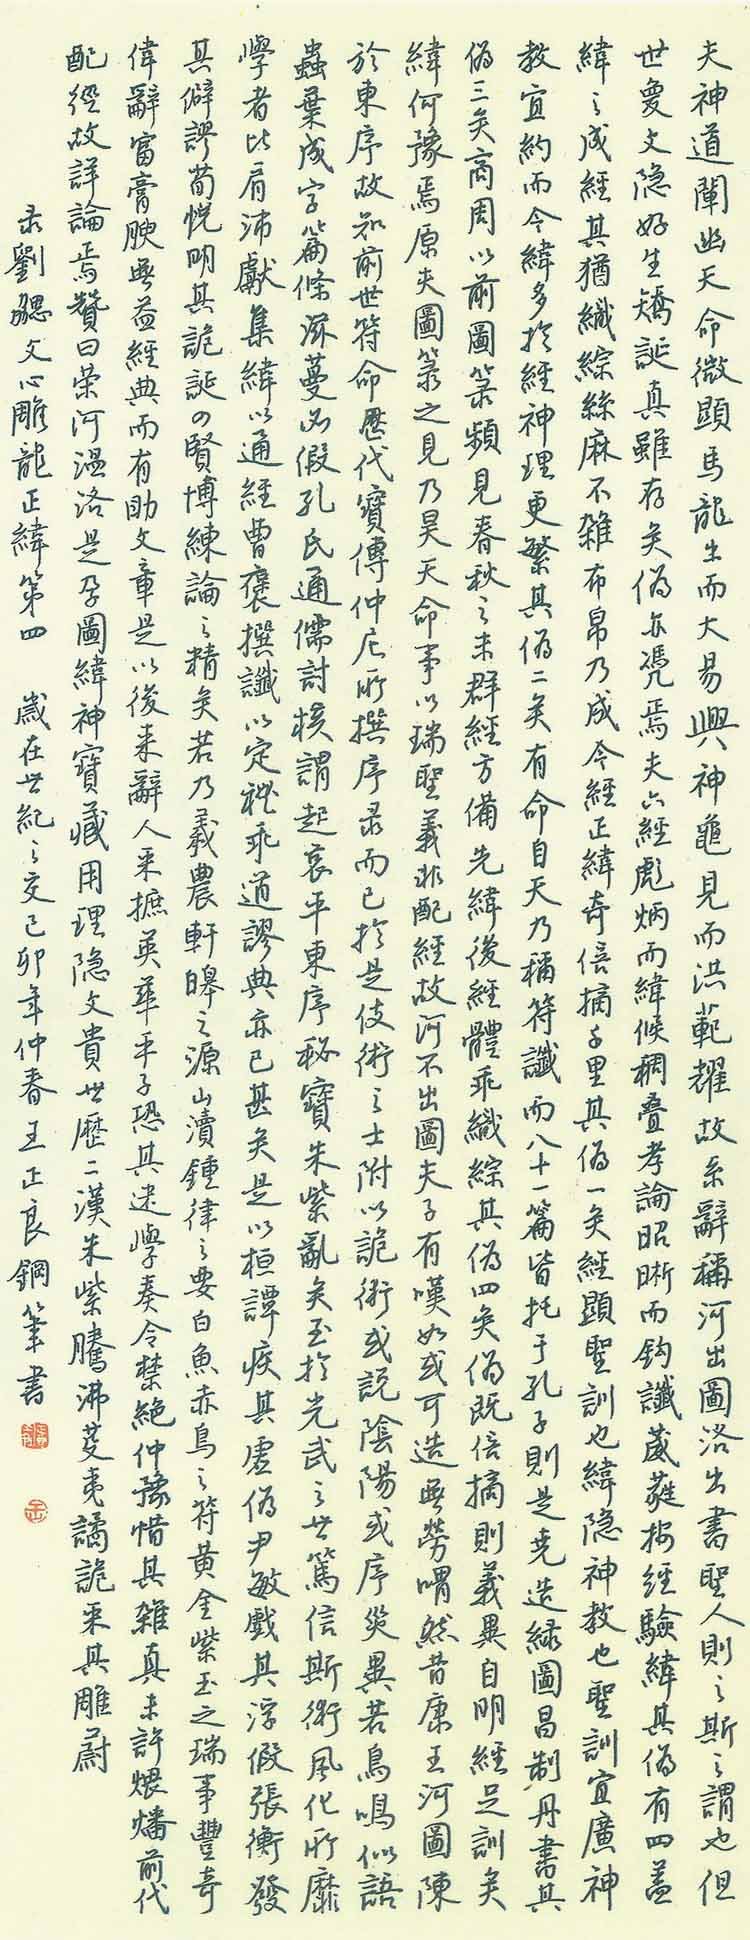 夫神道闡幽天命微顯馬龍出而大易興神龜見而洪範耀故系辭稱河出圖洛出書聖人則之斯之謂也但
世夐文隐好生矯誕真雖存矣偽亦憑焉夫六經彪炳而緯候稠疊孝論昭晰而鈎讖葳蕤按經驗緯其偽有四蓋
緯之成經其猶織綜絲麻不雜布帛乃成今經正緯奇倍摘千里其偽一矣經顯聖訓也緯隐神教也聖訓宜廣神
教宜約而今緯多於經神理更繁其偽二矣有命自天乃稱符讖而八十一篇皆托于孔子則是堯造緑圖昌制丹書其
偽三矣商周以前圖箓頻見春秋之末群經方備先緯後經體乖織綜其偽四矣偽既倍摘則義異自明經足訓矣
緯何豫焉原夫圖箓之見乃昊天命事以瑞聖義非配經故河不出圖夫子有嘆如或可造無勞喟然昔康王河圖陳
於東序故知前世符命歷代寶傳仲尼所撰序录而已於是伎術之士附以詭術或説陰陽或序災異若鳥鳴似語
蟲葉成字篇條滋蔓必假孔氏通儒討核謂起哀平東序秘寶朱紫亂矣至於光武之世篤信斯術風化所靡
學者比肩沛獻集緯以通經曹褒撰讖以定禮乖道謬典亦已甚矣是以桓譚疾其虛偽尹敏戲其浮假張衡發
其僻謬荀悅明其詭誕四賢博練論之精矣若乃羲農軒皞之源山瀆鍾律之要白魚赤烏之符黄金紫玉之瑞事豐奇
偉辭富膏腴無益經典而有助文章是以後来辭人采摭英華平子恐其迷學奏令禁絕仲豫惜其雜真未許煨燔前代
配經故詳論焉贊曰荣河温洛是孕圖緯神寶藏用理隐文貴世歷二漢朱紫騰沸芟夷譎詭采其雕蔚
录劉勰文心雕龍正緯第四 歲在世紀之交己卯年仲春王正良鋼筆書